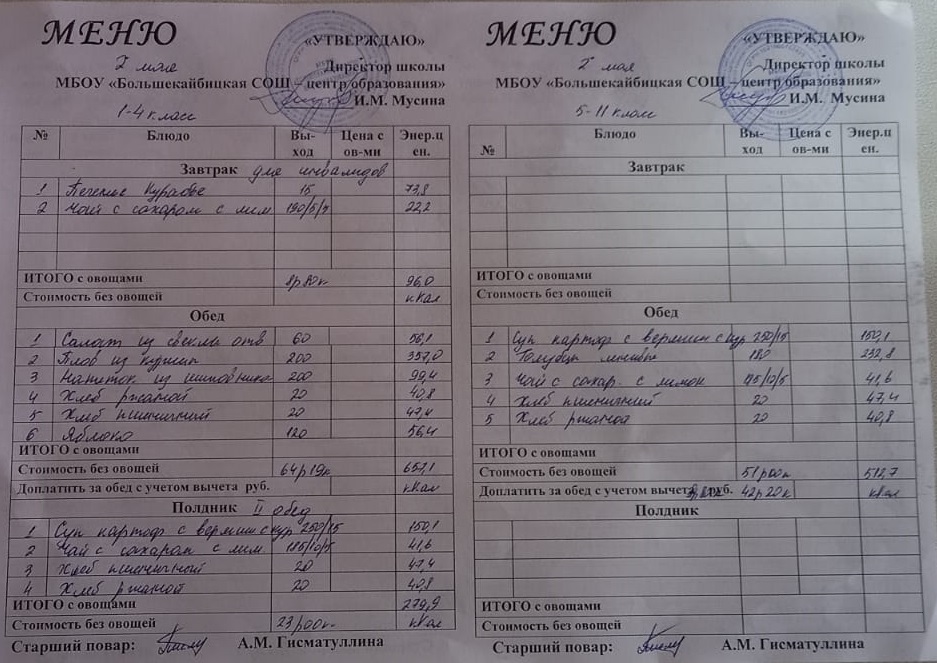 МЕНЮ
«УТВЕРЖДАЮ»
2 мая
Директор школы
МБОУ «Большекайбицкая СОШ – центр образования»
И.М. Мусина
1-4 класс
№ Блюдо Вы-ход Цена с ов-ми Энер.цен.
Завтрак для инвалидов
1 Печенье 15 73,8
2 Чай с сахаром с лим 190/5/5 22,2
ИТОГО с овощами 8р 80к 96,0
Стоимость без овощей кКал
Обед
1 Салат из свеклы отв 60 56,1
2 Плов из курицы 200 357,0
3 Напиток из шиповника 200 99,4
4 Хлеб ржаной 20 40,8
5 Хлеб пшеничный 20 47,4
6 Яблоко 120 56,4
ИТОГО с овощами
Стоимость без овощей 64р 19к 657,1
Доплатить за обед с учетом вычета руб. кКал
Полдник II обед
1 Суп картоф с вермиш с кур 250/15 150,1
2 Чай с сахаром с лим 185/10/5 41,6
3 Хлеб пшеничный 20 47,4
4 Хлеб ржаной 20 40,8
ИТОГО с овощами 279,9
Стоимость без овощей 23р00к кКал
Старший повар: А.М. Гисматуллина
МЕНЮ
«УТВЕРЖДАЮ»
2 мая
Директор школы
МБОУ «Большекайбицкая СОШ – центр образования»
И.М. Мусина
5-11 класс
№ Блюдо Вы-ход Цена с ов-ми Энер.цен.
Завтрак
ИТОГО с овощами
Стоимость без овощей
Обед
1 Суп картоф с вермиш с кур 250/15 150,1
2 Голубцы ленивые 180 232,8
3 Чай с сахар. с лимон 185/10/5 41,6
4 Хлеб пшеничный 20 47,4
5 Хлеб ржаной 20 40,8
ИТОГО с овощами
Стоимость без овощей 51р00к 512,7
Доплатить за обед с учетом вычета руб. 42р20к кКал
Полдник
ИТОГО с овощами
Стоимость без овощей
Старший повар: А.М. Гисматуллина